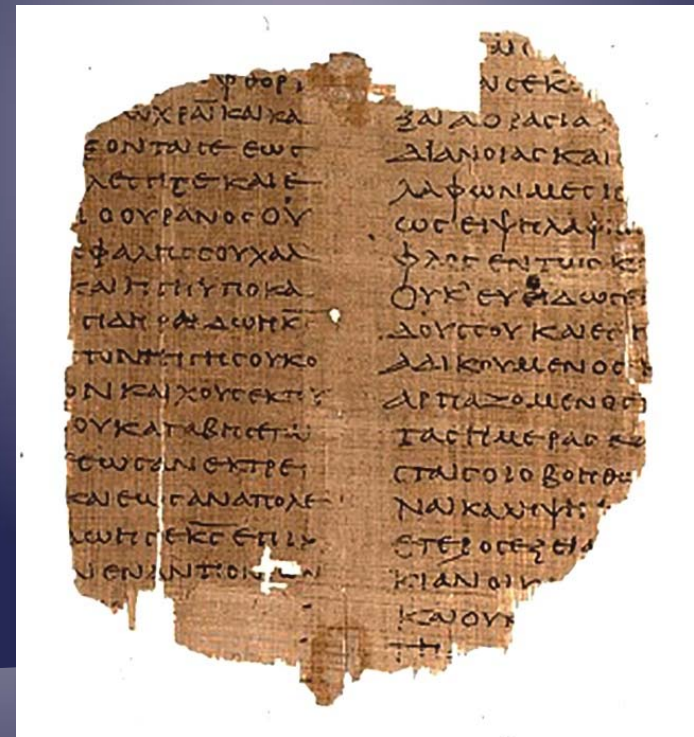 ΦΘΟΡΙ
ΩΧΡΑΙ ΚΑΙ ΚΑ
ΞΟΝΤΑΙ ΣΕ ΕΩΣ
ΛΕΣΗ ΣΕ ΚΑΙ Ε
Ι Ο ΟΥΡΑΝΟΣ Ο Υ
ΕΦΑΛΗΣ ΣΟΥ ΧΑΛ
ΚΑΙ Η ΓΗ Η ΥΠΟΚΑ
ΣΙΔΗΡΑ ΔΩΗ Κ̅Σ̅
ΤΟΝ ΤΗ ΓΗ ΣΟΥ ΚΟ
ΟΝ ΚΑΙ ΧΟΥΣ ΕΚ ΤΟΥ
ΟΥ ΚΑΤΑΒΗΣΕΤΑΙ
ΕΩΣ ΑΝ ΕΚΤΡΕΙ
ΚΑΙ ΕΩΣ ΑΝ ΑΠΟΛΕ
ΔΩΗ ΣΕ Κ̅Σ̅ ΕΠΙΚ
Ν ΕΝΑΝΤΙΟΝ
Ν ΣΕ Κ
ΞΑΙ ΑΟΡΑΣΙΑ
ΔΙΑΝΟΙΑΣ ΚΑΙ
ΛΑΦΩΝ ΜΕΣΗ
ΩΣ ΕΙ ΨΗΛΑΦΗ
ΦΛΟΣ ΕΝ ΤΩΙ ΣΚ
ΟΥΚ ΕΥΟΔΩΣΕΙ
ΔΟΥΣ ΣΟΥ ΚΑΙ ΕΣΗ
ΑΔΙΚΟΥΜΕΝΟΣ Κ
ΑΡΠΑΖΟΜΕΝΟΣ Π
ΤΑΣ ΗΜΕΡΑΣ
ΣΤΑΙ ΣΟΙ Ο ΒΟΗΘΩ
ΝΑΙΚΑ ΛΗΨΗΙ
ΕΤΕΡΟΣ ΕΞΕΙ Α
ΚΙΑΝ ΟΙ
ΚΑΙ ΟΥΚ